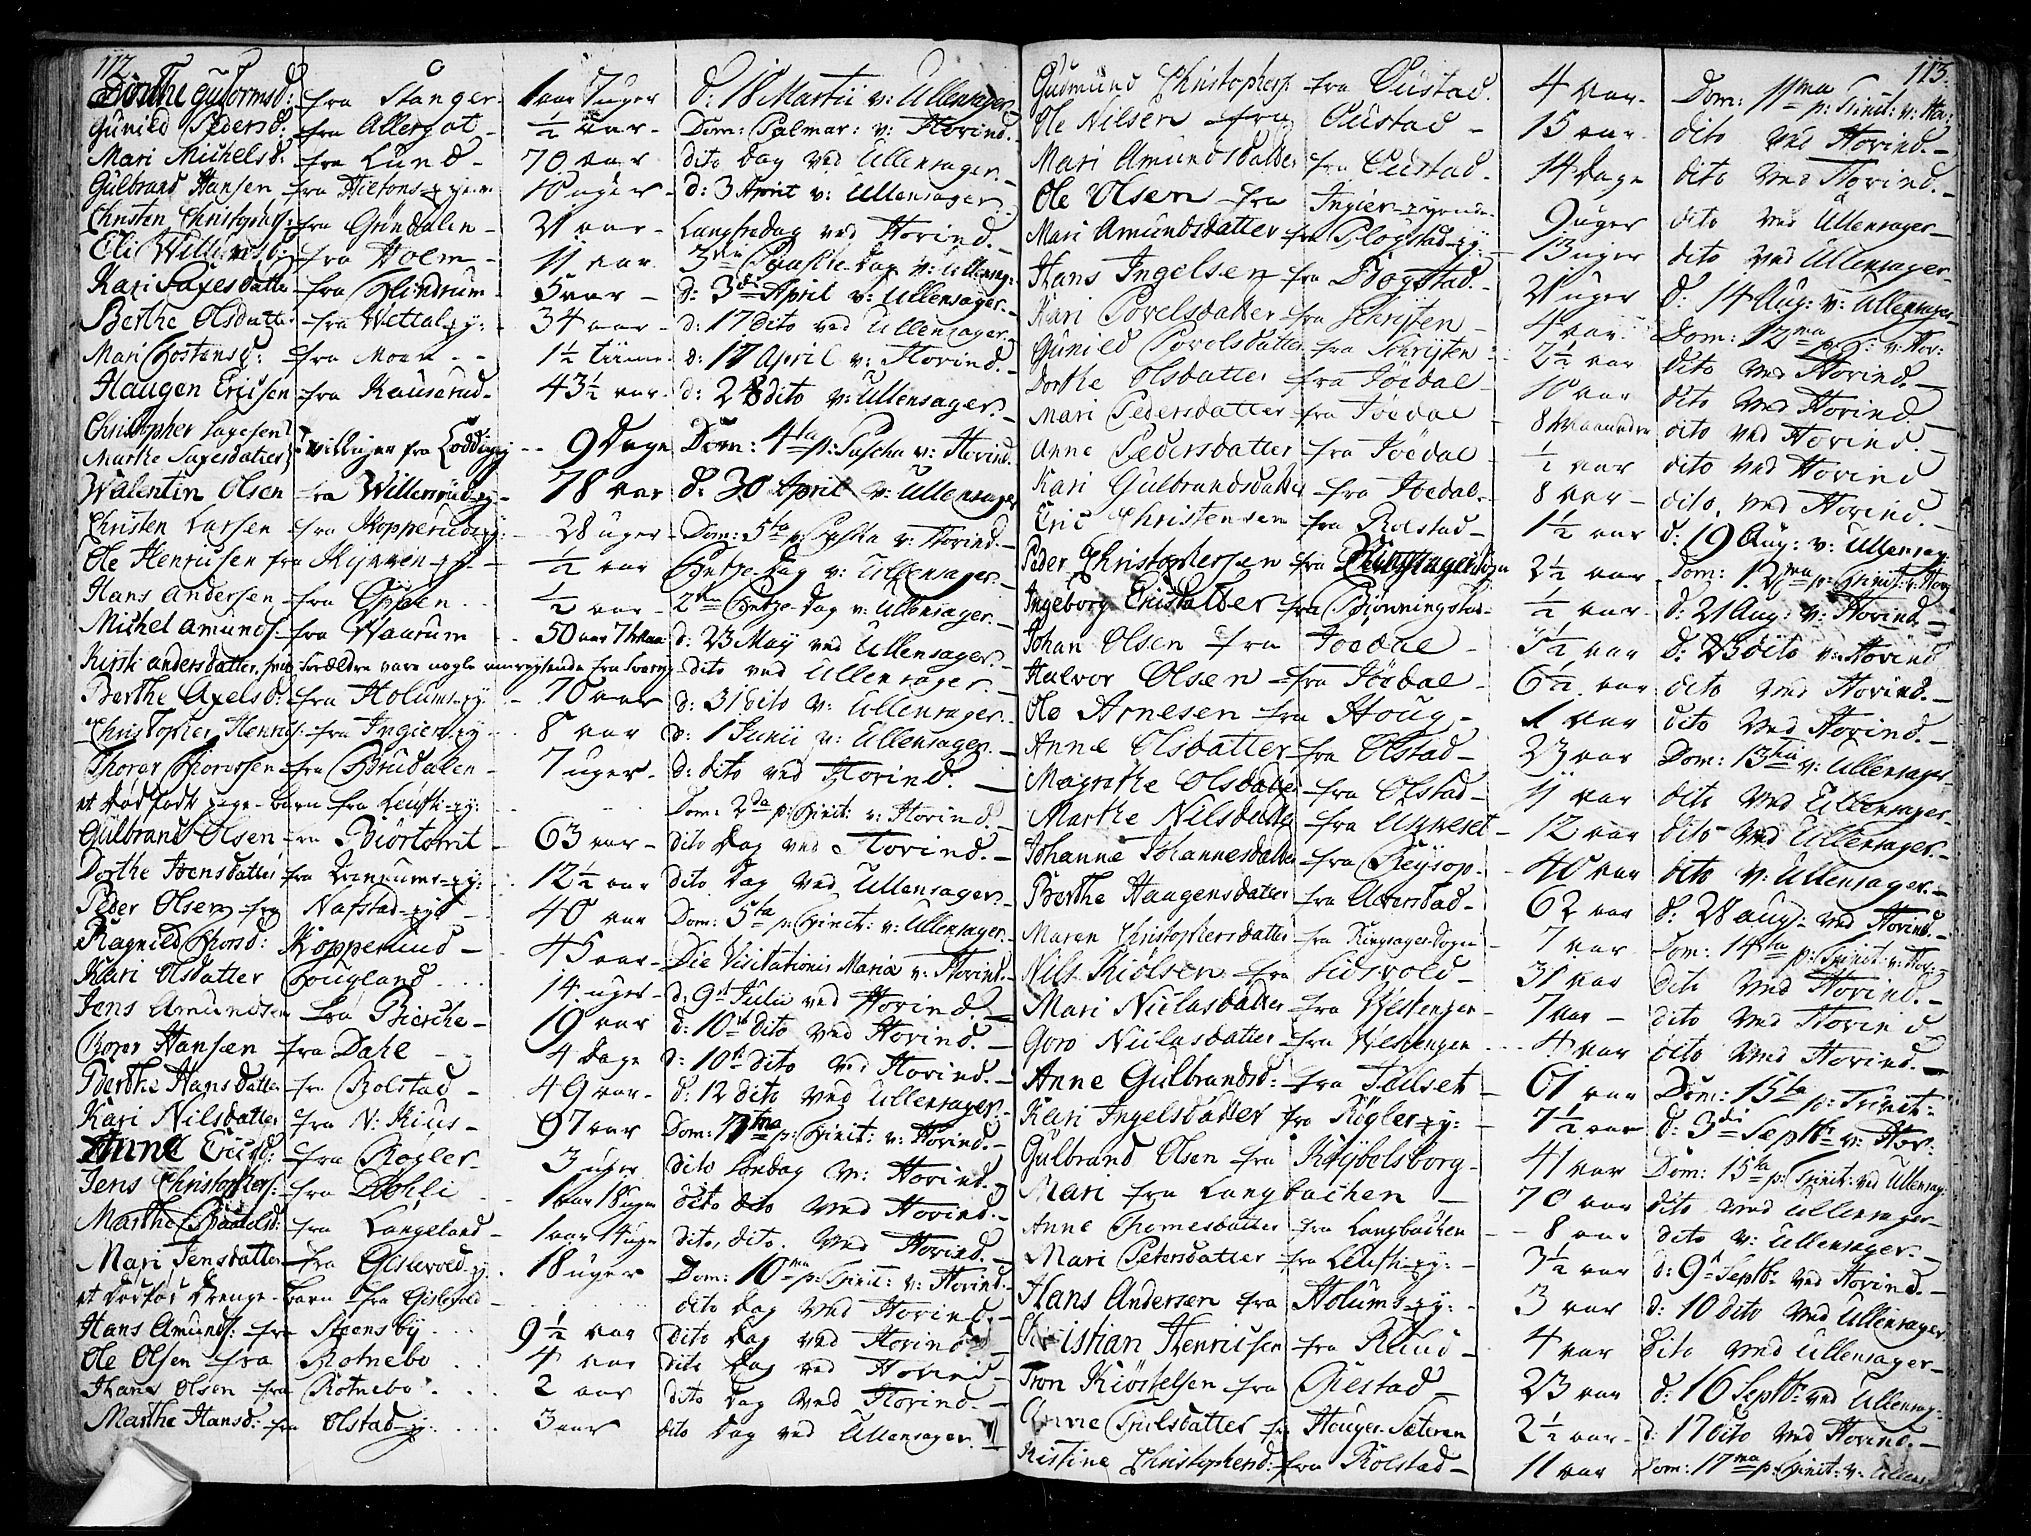 112.
Dorthe Gutormsd: fra Stanger - 1 aar 7 uger d: 18 Martii v: Ullensager
Gunild Pedersd: fra Allergot - ½ aar - Dom: Palmar: v: Hovind.
Mari Michelsd: fra Lund - 70 aar dito dag ved Ullensager. -
Gulbrand Hansen fra 10 uger - d: 3 April v: Ullensager.
Christen Christophers: fra Gröndalen - 21 aar - Langfredag ved Hovind. -
Eli Willumsd: fra Holm - 11 aar 3die Paaske-dag v: Ullensag:
Kari Taxesdatter fra Hindrum - 5 aar - d: 3de April v: Ullensager. -
Berthe Olsdatter fra Wettal-ey: - 34 aar - d: 17 dito ved Ullensager.
Mari Tostensd: fra Moen - - 1½ time d: 17 April v: Hovind. -
Haagen Ericsen fra Rauserud - 43½ aar - d: 28 dito v: Ullensager. -
Christopher Taxesen
Marthe Taxesdatter } tvillinger fra Lodding-ey - - 9 dage Dom: 4ta p: Pascha v: Hovind.
Valentin Olsen fra Willersrud-ey - 78 aar d: 30 April v: Ullensager
Christen Larsen fra Kopperud-ey: 28 uger - Dom: 5ta p: Paska v: Hovind. -
Ole Henricsen fra - ½ aar dag v: Ullensager. -
Hans Andersen fra - - ½ aar - 2den dag v: Ullensager. -
Michel Amunds: fra Waarum 50 aar 7 Maa: d: 23 May ved Ullensager. -
Kirsti Andersdatter, hvis Forældre vare nogle omreysende fra Sverrig - dito ved Ullensager. -
Berthe Axelsd: fra Holums-ey - 70 aar d: 31 dito v: Ullensager.
Christopher Henrics: fra Ingier-ey - - 8 aar d: 1 Junii v: Ullensager. -
Thorer Thorersen fra Brudalen - 7 uger - d: dito ved Hovind. -
et dödfödt pige-barn fra Leufti-ey: Dom: 2da p: Trinit: v: Hovind.
Gulbrand Olsen fra Biörtomt - 63 aar - dito dag ved Hovind. -
Dorthe Jensdatter fra 12½ aar dito dag ved Ullensager. -
Peder Olsen fra Nafstad-eye - 40 aar Dom: 5ta p: Trinit: v: Ullensager. -
Ragnild Thorsd: Kopperud - 45 aar - Die Visitationis Mariæ v: Hovind. -
Kari Olsdatter Hougland . . . 14 uger - d: 9de Julii ved Hovind. -
Jens Amundsen fra Bierche - 19 aar d: 10de dito ved Hovind. -
Hansen fra Dahl - - 4 dage d: 10de dito ved Hovind. -
Berthe Hansdatter fra Rolstad - 49 aar - d: 12 dito ved Ullensager. -
Kari Nilsdatter fra N: Rius - 97 aar Dom: 7ma p: Trinit: v: Hovind. -
Anne Ericsd: fra Rögler - 3 uger dito Söndag v: Hovind. -
Jens Christophers: fra Döhli 1 aar 18 uger dito dito ved Hovind. -
Marthe fra Langeland - 1 aar uger dito, dito. ved Hovind. -
Mari Jensdatter fra Gislevold-ey. . 18 uger Dom: 10ma p: Trinit: v: Hovind. -
et dödföd drenge-barn fra Gislevold - dito dag ved Hovind. -
Hans Amunds: fra Steensby . . . 9½ aar dito dag ved Hovind.
Ole Olsen fra Rotnebo . . . 4 aar dito dag ved Hovind. -
Hans Olsen fra Rotnebo . . . . 2 aar dito dag ved Hovind. -
Marthe Hansd: fra Olstad-ey: . . . . 3 aar dito dag ved Ullensager. -
113.
Gudmund Christophers: fra Oustad. 4 aar - Dom: 11ma p: Trinit: v: Ho:
Ole Nilsen fra Oustad - 15 aar - dito ved Hovind. -
Mari Amundsdatter fra Oustad - 14 dage dito ved Hovind. -
Ole Olsen fra Ingier-eyende - 9 uger dito ved Ullensager -
Mari Amundsdatter fra Plogstad-ey: - 13 uger dito ved Ullensager -
Hans Ingelsen fra Bogstad. - 21 uger d: 14 Aug: v: Ullensager
Kari Povelsdatter fra Schriften - 4 aar - Dom: 12ma p: T: v: Hov:
Gunild Povelsdatter fra Schriften - 2½ aar dito ved Hovind. -
Dorthe Olsdatter fra Jödal - 10 aar dito ved Hovind. -
Mari Pedersdatter fra Jödal 8 Maaneder dito ved Hovind. -
Anne Pedersdatter fra Jödal - ½ aar dito ved Hovind
Kari Gulbrandsdatter fra Jödal - 8 aar - dito, ved Hovind. -
Eric Christensen fra Rolstad - 1½ aar d: 19 Aug: v: Ullensag:
Peder Christophersen fra Ringsager Sogn 2½ aar Dom: 12ma p: Trinit: v: Hov:
Ingeborg Ericsdatter fra Bjønningstad - ½ aar - d: 21 Aug: v: Hovind. -
Johan Olsen fra Jödal - 3½ aar d: 23 dito v: Hovind
Halvor Olsen fra Jödal - 6½ aar dito ved Hovind. -
Ole Arnesen fra Houg - 1 aar dito ved Hovind. -
Anne Olsdatter fra Olstad - 23 aar Dom: 13tia v: Ullensager -
Magrethe Olsdatter fra Olstad - 11 aar dito ved Ullensager -
Marthe Nilsdatter fra - 12 aar dito ved Ullensager. -
Johanne Johannesdatter fra Reysop - - 40 aar dito v: Ullensager. -
Berthe Haagensdatter fra Aaverstad - 62 aar d: 28 Aug: ved Hovind. -
Maren Christophersdatter fra Ringsager Sogn - 7 aar Dom: 14ta p: Trinit: v: Hov: -
Nils Kiölsen fra Eidsvold - 31 aar dito ved Hovind. -
Mari Niclasdatter fra Westengen - 7 aar - dito ved Hovind
Goro Niclasdatter fra Westengen - - - 4 aar dito ved Hovind. -
Anne Gulbrandsd: fra Tailset - 61 aar Dom: 15ta p: Trinit: -
Kari Ingelsdatter fra Rögler-ey: - 7½ aar d: 3di Septbr v: Hov:
Gulbrand Olsen fra Kiybelsborg - 41 aar Dom: 15ta p: Trinit: ved Ullensag:
Mari fra Langbachen - 70 aar dito ved Ullensager -
Anne Thomesdatter fra Langbachen - - 8 aar dito v: Ullensager. -
Mari Petersdatter fra Leufti-ey: - 3½ aar d: 9de Septb: ved Hovind. -
Hans Andersen fra Holums-ey: - 3 aar d: 10 dito ved Ullensager
Christian Henricsen fra Ruud - 4 aar dito ved Ullensager -
Tron Kiöstelsen fra Riestad - 23 aar d: 16 Septbr ved Ullensag:
Anne Truilsdatter fra Houger-Sæteren 2½ aar - d: 17 dito ved Hovind. -
Kistine Christophersd: fra Rolstad - 11 aar Dom: 17ma p: Trinit: v: Ullens: